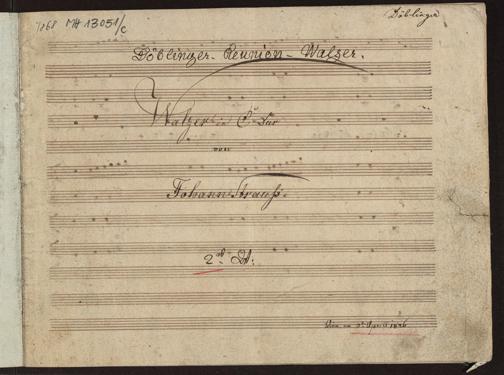 7868 MH 13051/c
Döblinger
Döblinger-Reunion-Walzer.
Walzer in C Dur
von
Johann Strauß.
2
April